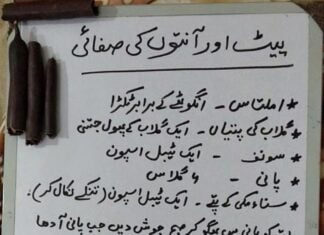 پیٹ اور آنتوں کی صفائی
* املتاس - انگوٹھے کے برابر ٹکڑا
* گلاب کی پتیاں - ایک گلاب کے پھول جتنی
* سونف - ایک ٹیبل اسپون
* پانی - ۴ گلاس
* سناء مکی کے پتے - ایک ٹیبل اسپون (تنکے نکال کر)
پانی میں بھگو کر صبح جوش دیں جب پانی آدھا